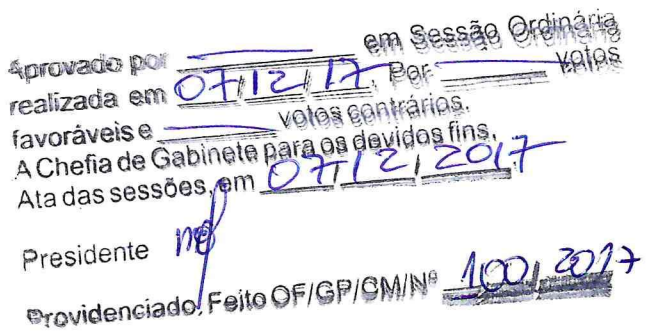 Aprovado por ______ em Sessão Ordinária
realizada em 07/12/17. Por ______ votos
favoráveis e ______ votos contrários.
A Chefia de Gabinete para os devidos fins.
Ata das sessões, em 07/12/2017
Presidente
Providenciado, Feito OF/GP/CM/Nº 100/2017